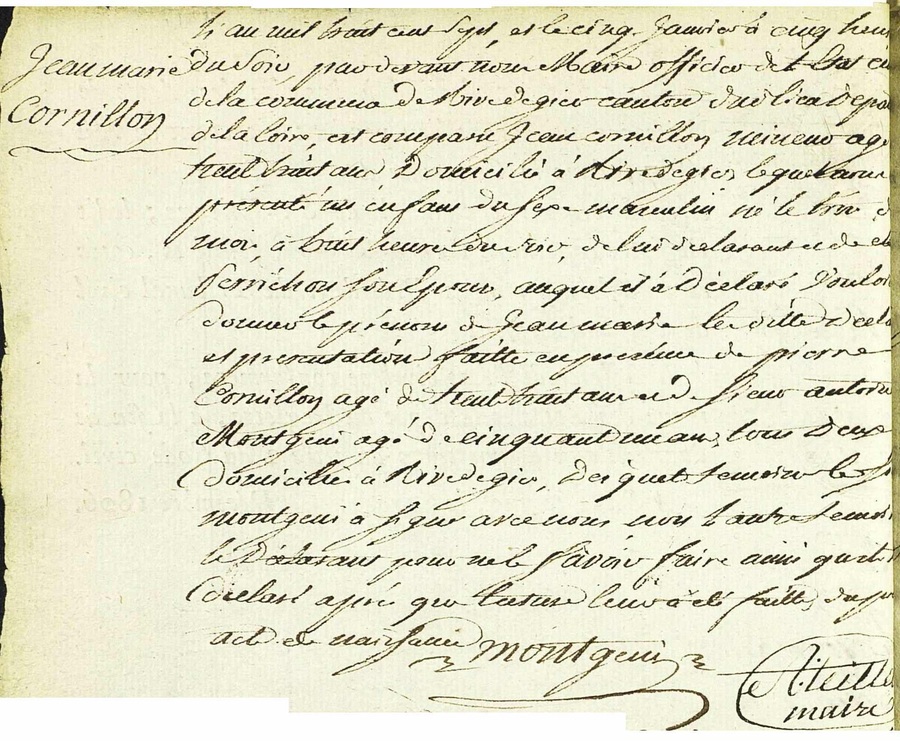 Jean marie
Cornillon
L'an mil huit cent Sept, et le cinq Janvier à cinq heur
du Soir, par devant nous Maire officier de l'Etat ci
de la commune de Rivedegier canton du dit lieu Depa
de la Loire, est comparu Jean cornillon mineur agé
trent huit ans Domicilié à Rivedegier lequel nous
présenté un enfant du Sexe masculin né le trois d
mois, à huit heure du Soir, de lui declarant et de
Perrichon Son Epouse, auquel il à Déclaré Vouloi
donner le prénom de Jean marie les dittes decla
et présentation faitte en présence de pierre
Cornillon agé de trent huit ans et de Sieur antoine
Montgeni agé de cinquant un an, tous Deux
domicilié à Rivedegier, Desquel temoins le Sr
montgeni à Signé avec nous non l'autre temoi
le Déclarant pour ne le Savoir faire ainsi qu'il
declaré après que lecture leur à été faitte, du pr
acte de naissance
Montgeni
maire